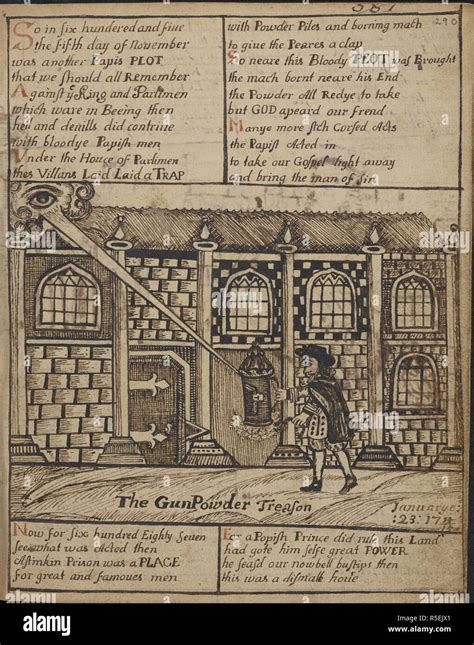 290
So in six hundered and five
the fifth day of November
was another Papis PLOT
that we should all Remember
Against ye King and Parlimen
which ware in Beeing then
hell and devills did contrive
with bloodye Papish men
Vnder the House of Parlimen
thes Villans Laid Laid a TRAP
with Powder Piles and borning mach
to give the Peares a clap
So neare this Bloody PLOT was Brought
the mach bornt neare his End
the Powder All Redye to take
but GOD apeard our frend
Manye more sich Corsed Acts
the Papist Acted in
to take our Gospel light away
and bring the man of sin
The GunPowder Treason
January
:23: 17
Now for six hundred Eighty Seven
see what was Acted then
Prison was a PLACE
for great and famoues men
For a Popish Prince did rule this Land
had gote him selfe great POWER
he seasd our nowbell buships then
this was a dismall houre
alamy
Image ID: R5EJX1
www.alamy.com